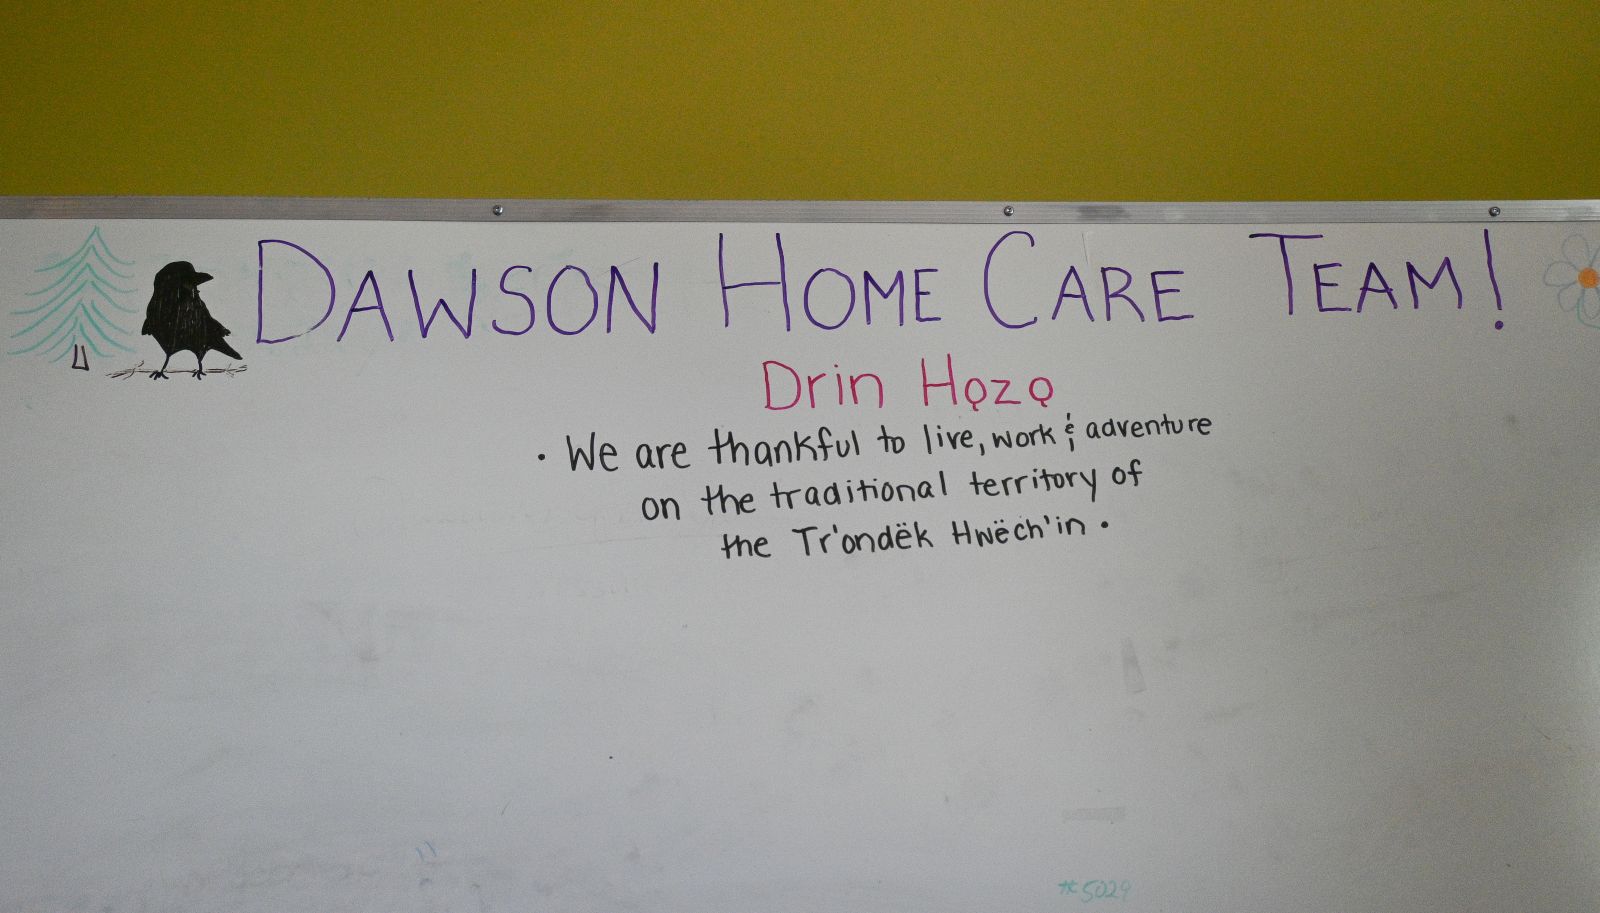 DAWSON HOME CARE TEAM!
Drin Hǫzǫ
· We are thankful to live, work & adventure
on the traditional territory of
the Tr'ondëk Hwëch'in ·
*5029